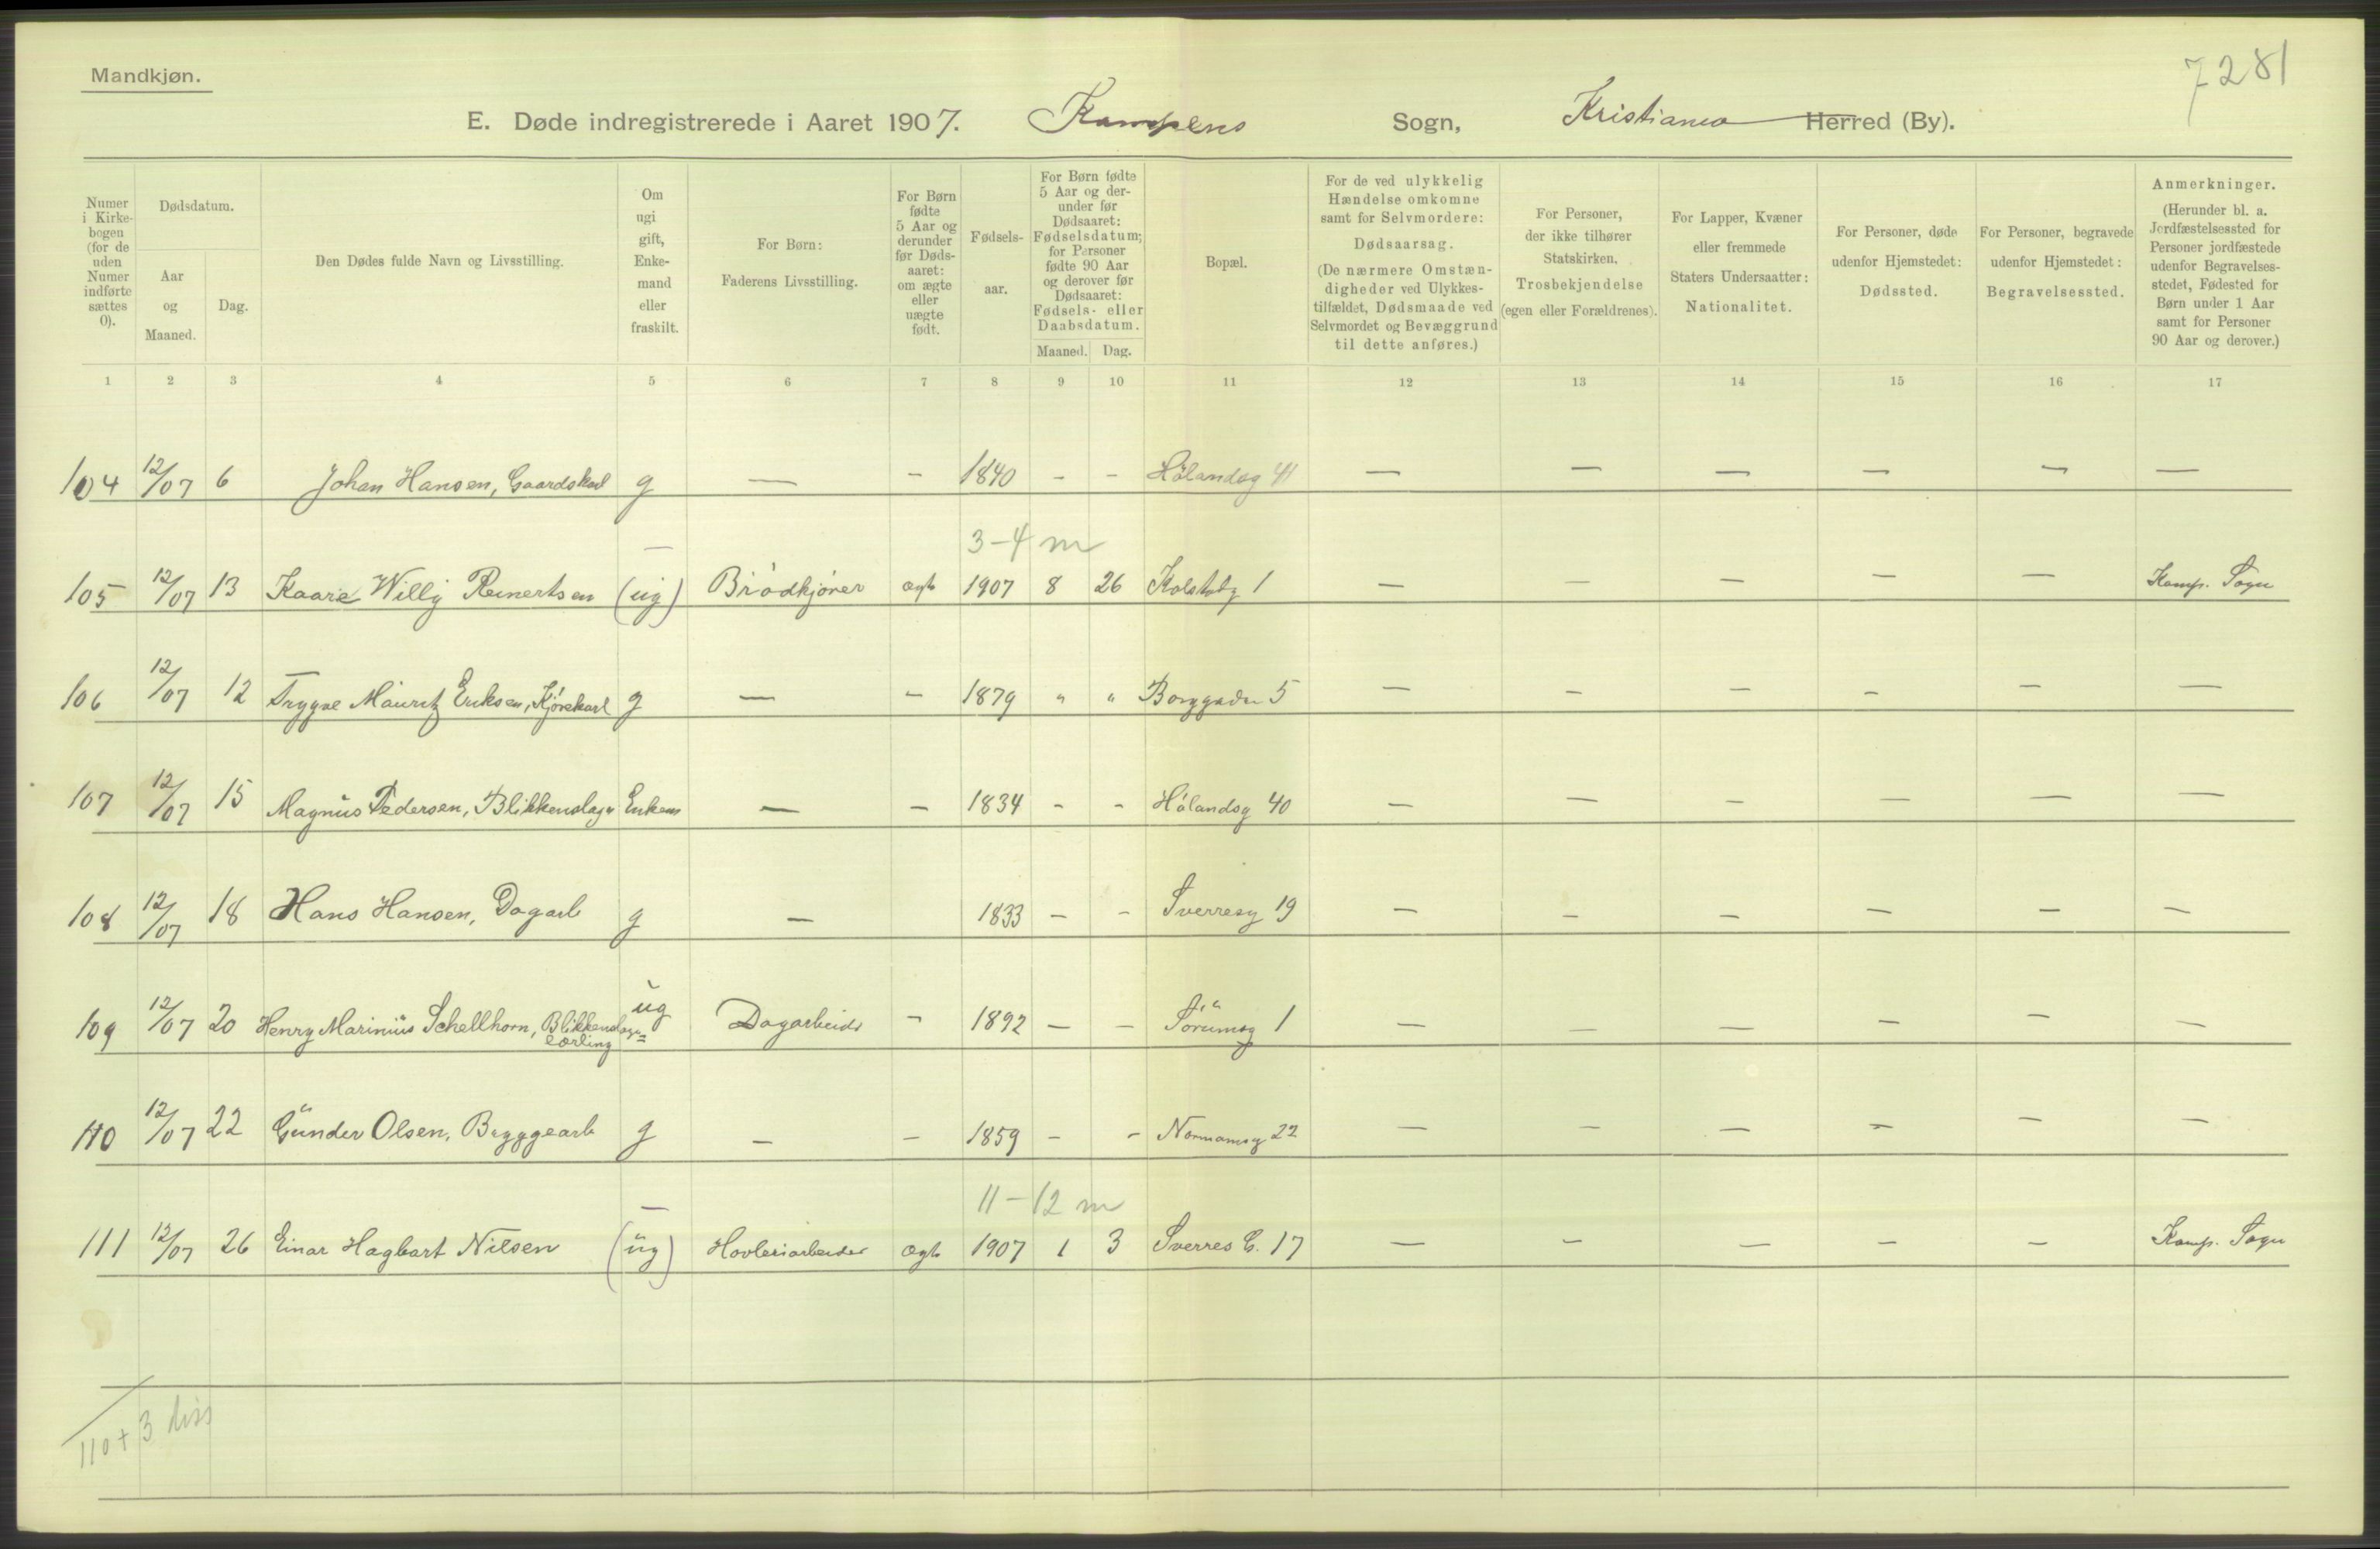 7281
Mandkjøn.
E. Døde indregistrerede i Aaret 1907. Kampens Sogn, Kristiania Herred (By).
Numer i Kirkebogen (for de uden Numer indførte sættes 0).
Dødsdatum.
Aar og Maaned.
Dag.
Den Dødes fulde Navn og Livsstilling.
Om ugi gift, Enkemand eller fraskilt.
For Børn: Faderens Livsstilling.
For Børn fødte 5 Aar og derunder før Dødsaaret: om ægte eller uægte født.
Fødselsaar.
For Børn fødte 5 Aar og derunder før Dødsaaret: Fødselsdatum; for Personer fødte 90 Aar og derover før Dødsaaret: Fødsels- eller Daabsdatum.
Maaned. Dag.
Bopæl.
For de ved ulykkelig Hændelse omkomne samt for Selvmordere: Dødsaarsag. (De nærmere Omstændigheder ved Ulykkestilfældet, Dødsmaade ved Selvmordet og Bevæggrund til dette anføres.)
For Personer, der ikke tilhører Statskirken, Trosbekjendelse (egen eller Forældrenes).
For Lapper, Kvæner eller fremmede Staters Undersaatter: Nationalitet.
For Personer, døde udenfor Hjemstedet: Dødssted.
For Personer, begravede udenfor Hjemstedet: Begravelsessted.
Anmerkninger. (Herunder bl. a. Jordfæstelsessted for Personer jordfæstede udenfor Begravelsesstedet, Fødested for Børn under 1 Aar samt for Personer 90 Aar og derover.)
1 2 3 4 5 6 7 8 9 10 11 12 13 14 15 16 17
104 12/07 6 Johan Hansen, Gaardskarl g — - 1840 - - Hölandsg 41 — — — — — —
3-4 m
105 12/07 13 Kaare Willy Reinertsen (ug) Brødkjører ægte 1907 8 26 Kolstadg 1 — — — — — Kamp. Sogn
106 12/07 12 Trygve Mauritz Eriksen, Kjørekarl g — - 1879 " " Borggaden 5 — — — — — —
107 12/07 15 Magnus Pedersen, Blikkenslager Enkem — - 1834 - - Hölandsg 40 — — — — — —
108 12/07 18 Hans Hansen, Dagarb g — 1833 - - Sverresg 19 — — — — — —
109 12/07 20 Henry Marinius Schellhorn, Blikkenslager= ug Dagarbeider - 1892 - - Sörumsg 1 — — — — — —
lærling
110 12/07 22 Gunder Olsen, Bryggearb g — - 1859 - - Normannsg 22 — — — — — —
11-12 m
111 12/07 26 Einar Hagbart Nilsen (ug) Høvleriarbeider ægte 1907 1 3 Sverres G. 17 — — — — — Kamp. Sogn
110 + 3 diss